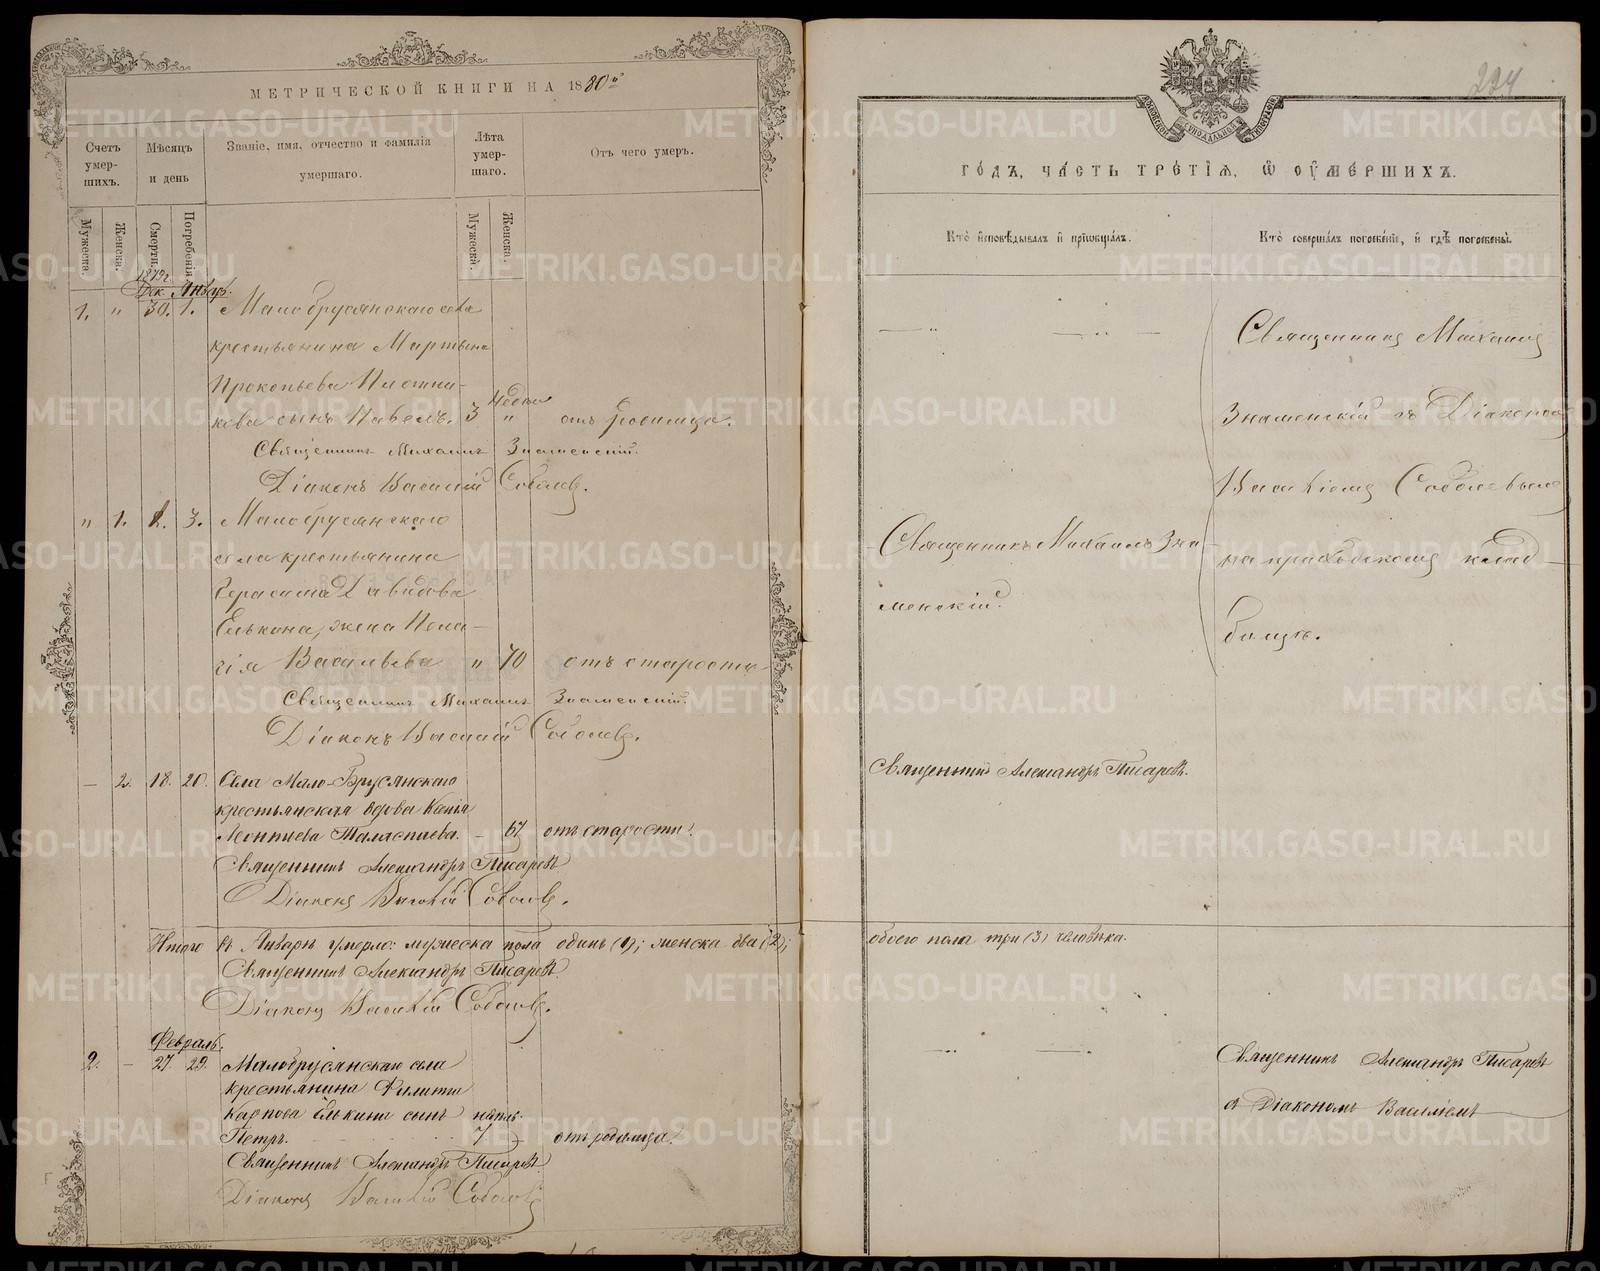 МЕТРИЧЕСКОЙ КНИГИ НА 1880й
Счетъ умер-шихъ.
Мѣсяцъ и день
Званіе, имя, отчество и фамилія умершаго.
Лѣта умер-шаго.
Отъ чего умеръ.
Мужеска.
Женска.
Смерти.
Погребенія
Мужеска.
Женска.
1879г.
Дек. Январ.
1. " 30. 1. Малобрусянскаго села
крестьянина Мартына
Прокопьева Плотни-
кова сынъ Павелъ. 3 недели " отъ родимца.
Священникъ Михаилъ Знаменскій.
Діаконъ Василій Соболевъ.
" 1. 1. 3. Малобрусянскаго
села крестьянина
Герасима Давидова
Елькина, жена Пела-
гія Васильева " 70 отъ старости
Священникъ Михаилъ Знаменскій.
Діаконъ Василій Соболевъ.
— 2. 18. 20. Села Мало-Брусянскаго
крестьянская вдова Ксенія
Леонтиева — 67 отъ старости.
Священникъ Александръ Писаревъ
Діаконъ Василій Соболевъ.
Итого въ Январѣ умерло: мужеска пола одинъ (1); женска два (2);
Священникъ Александръ Писаревъ
Діаконъ Василій Соболевъ.
Февраль.
2. — 27. 29. Малобрусянскаго села
крестьянина Филиппа
Карпова Елькина сынъ
Петръ. 7 — отъ родимца.
Священникъ Александръ Писаревъ
Діаконъ Василій Соболевъ
224
МОСКОВСКОЙ СѴНОДАЛЬНОЙ ТИПОГРАФІИ
ГО́ДЪ, ЧА́СТЬ ТРЕ́ТІѦ, Ѿ ОУ҆МЕ́РШИХЪ.
Кто̀ и҆сповѣ́дывалъ и҆ прїѡбща́лъ.
Кто̀ соверша́лъ погребе́нїе, и҆ гдѣ̀ погребены̀.
Священникъ Михаилъ
Знаменскій съ Діакономъ
Василіемъ Соболевымъ
на приходскомъ клад-
бищѣ.
Священникъ Михаилъ Зна-
менскій.
Священникъ Александръ Писаревъ.
обоего пола три (3) человѣка.
Священникъ Александръ Писаревъ
съ Діакономъ Василіемъ
METRIKI.GASO-URAL.RU